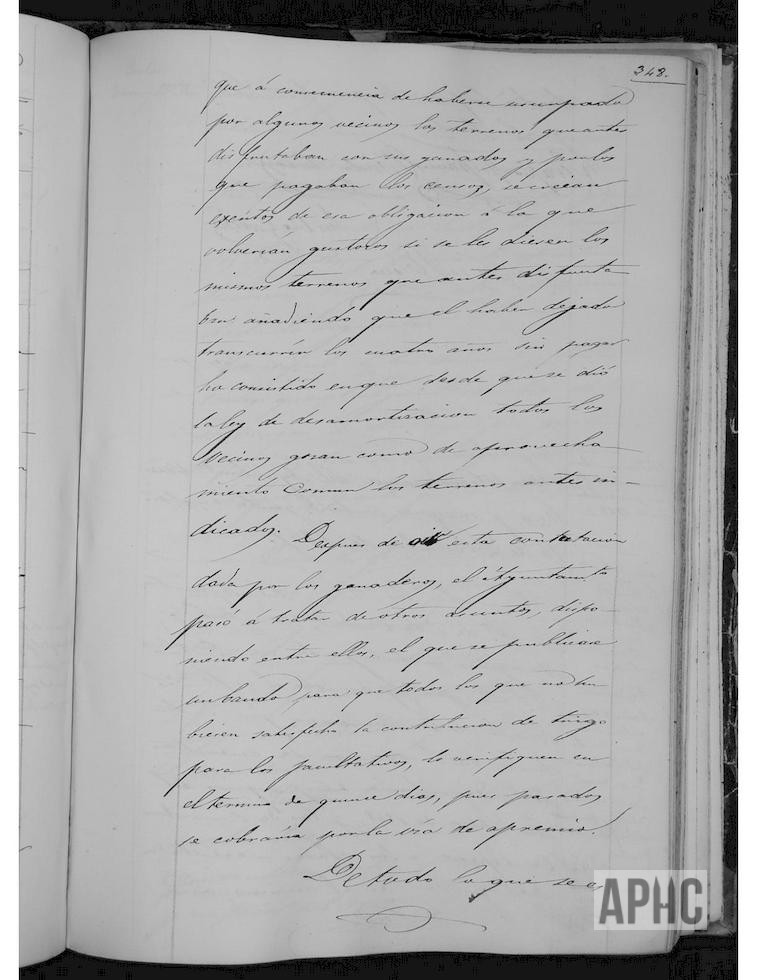 348.
que á consecuencia de haberse usurpado
por algunos vecinos los terrenos que antes
disfrutaban con sus ganados y por los
que pagaban los censos, se creian
exentos de esa obligacion á la que
volverian gustosos si se les diesen los
mismos terrenos que antes disfruta-
ban añadiendo que el haber dejado
transcurrir los cuatro años sin pagar
ha consistido en que desde que se dió
la ley de desamortizacion todos los
vecinos gosan como de aprovecha-
miento comun los terrenos antes in-
dicados. Despues de oir esta contestacion
dada por los ganaderos, el Ayuntamto
pasó á tratar de otros asuntos, dispo-
niendo entre ellos, el que se publicase
un bando para que todos los que no hu-
biesen satisfecho la contribucion de trigo
para los facultativos, lo verifiquen en
el termino de quince dias, pues pasados
se cobraria por la via de apremio.
De todo lo que se e
APHC